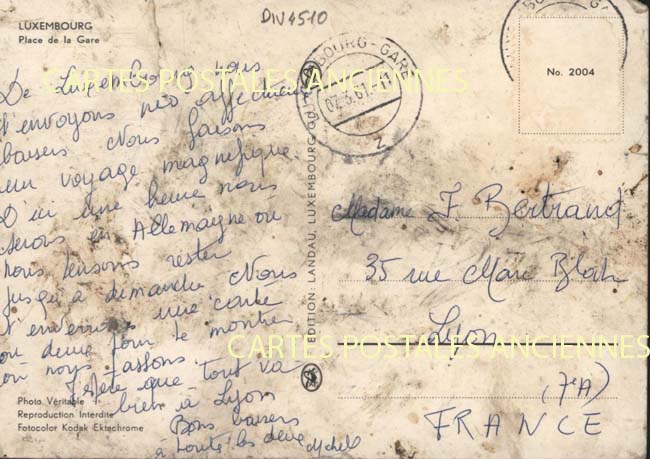 DIV4510
LUXEMBOURG
Place de la Gare
De Luxembourg nous
t'envoyons nos affectueux
baisers Nous faisons
un voyage magnifique
D'ici une heure nous
serons en Allemagne où
nous pensons rester
jusqu'à dimanche Nous
t'enverrons une carte
ou deux pour te montrer
où nous passons
J'espère que tout va
bien à Lyon
Bons baisers
à toute les deux Michel
Photo Véritable
Reproduction Interdite
Fotocolor Kodak Ektachrome
EDITION: LANDAU, LUXEMBOURG
LUXEMBOURG-GARE
07.3.61
2
No. 2004
Madame F. Bertrand
35 rue Marc Bloch
Lyon
(7eA)
FRANCE
CARTES POSTALES ANCIENNES
CARTES POSTALES ANCIENNES